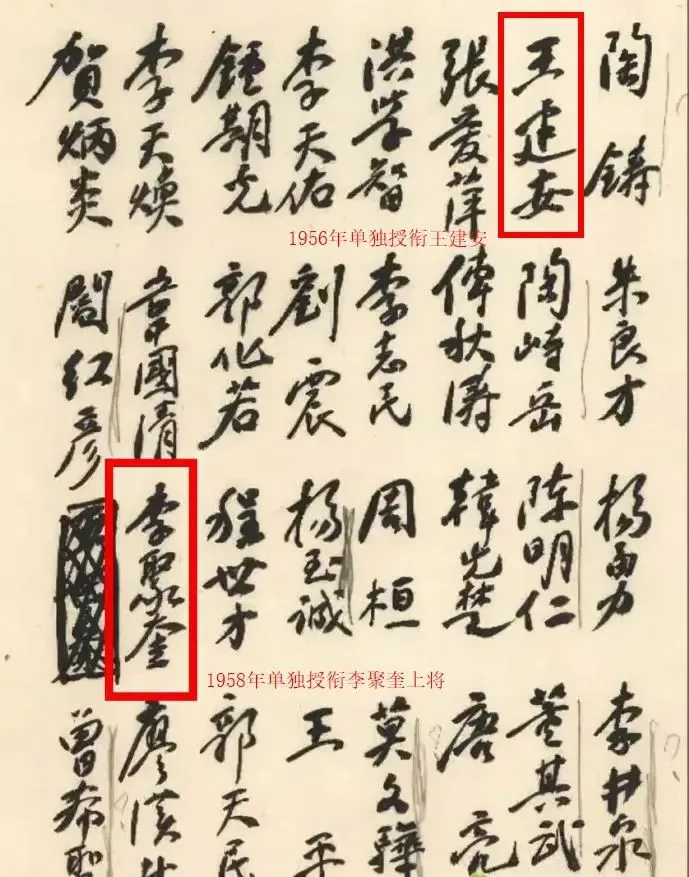 陶鑄 朱良才 杨勇 李井泉
王建安 陶峙岳 陈明仁 董其武
張愛萍 傅秋涛 韓先楚 唐亮
洪学智 李志民 周桓 莫文驊
李天佑 劉震 杨至誠 王平
鍾期光 郭化若 程世才 郭天民
李天焕 韋國清 李聚奎 廖漢
賀炳炎 閻红彦 曾希聖
1956年单独授衔王建安
1958年单独授衔李聚奎上将